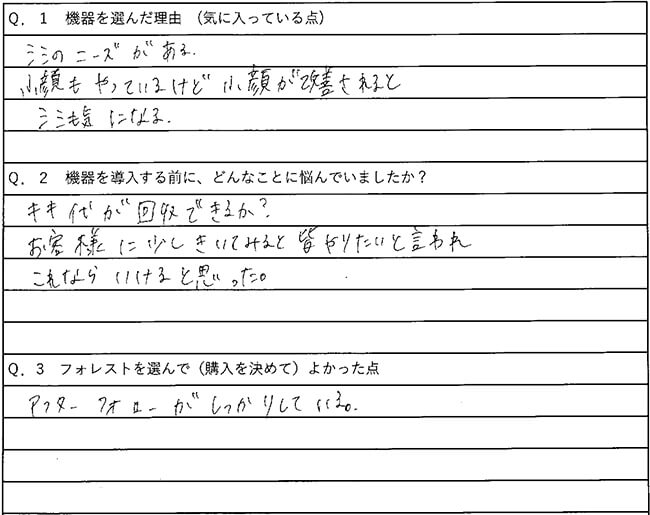 Q．１　機器を選んだ理由　（気に入っている点）
シミのニーズがある．
小顔もやっているけど小顔が改善されると
シミも気になる．
Q．２　機器を導入する前に、どんなことに悩んでいましたか？
キキ代が回収できるか？
お客様に少しきいてみると皆やりたいと言われ
これならいけると思った。
Q．３　フォレストを選んで（購入を決めて）よかった点
アフターフォローがしっかりしている。